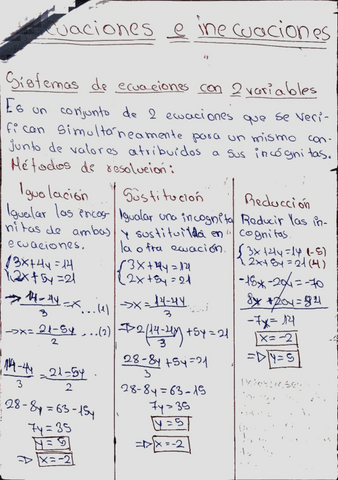 Ecuaciones e inecuaciones
Sistemas de ecuaciones con 2 variables
Es un conjunto de 2 ecuaciones que se veri-
fican simultáneamente para un mismo con-
junto de valores atribuidos a sus incógnitas.
Métodos de resolución:
Igualación
Igualar las incóg-
nitas de ambas
ecuaciones.
3x+4y=14
2x+5y=21
→ 14-4y/3 = x ... (1)
→ x = 21-5y/2 ... (2)
14-4y/3 = 21-5y/2
28-8y = 63-15y
7y = 35
y = 5
⇒ x = -2
Sustitución
Igualar una incógnita
y sustituirla en
la otra ecuación.
3x+4y=14
2x+5y=21
→ x = 14-4y/3
→ 2(14-4y/3) + 5y = 21
28-8y/3 + 5y = 21
28-8y = 63-15y
7y = 35
y = 5
⇒ x = -2
Reducción
Reducir las in-
cógnitas
3x+4y=14 (-5)
2x+5y=21 (4)
-15x-20y=-70
8x+20y=84
-7x = 14
x = -2
⇒ y = 5